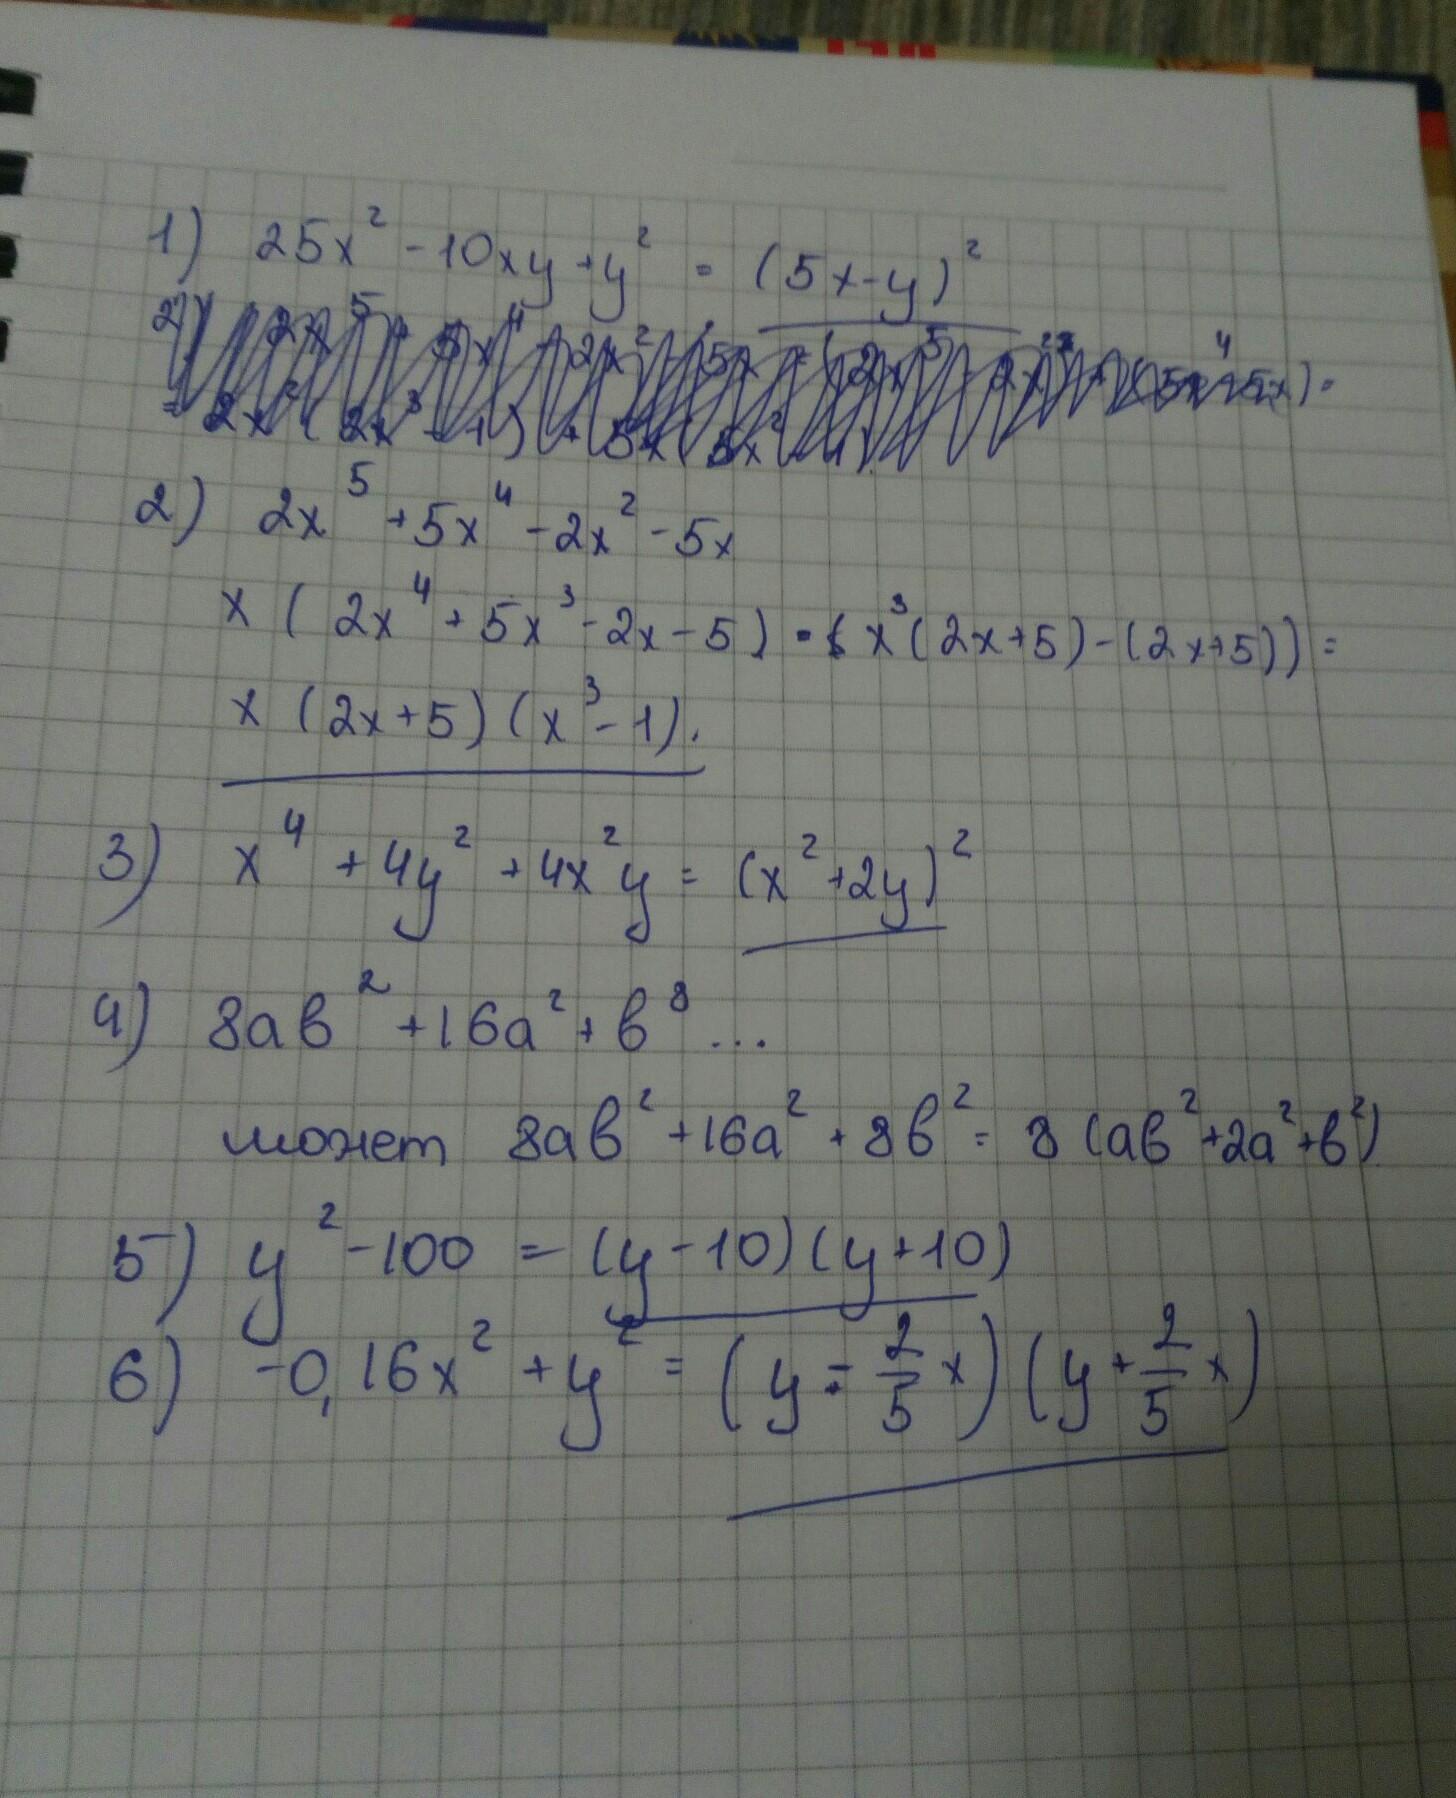 1) 25x² - 10xy + y² = (5x - y)²
2) 2x⁵ + 5x⁴ - 2x² - 5x
x (2x⁴ + 5x³ - 2x - 5) = ( x³ (2x+5) - (2x+5)) =
x (2x+5) (x³ - 1).
3) x⁴ + 4y² + 4x²y = (x² + 2y)²
4) 8ab² + 16a² + b⁸ ...
может 8ab² + 16a² + 8b² = 8 (ab² + 2a² + b²)
5) y² - 100 = (y - 10) (y + 10)
6) -0,16x² + y² = (y - 2/5 x) (y + 2/5 x)